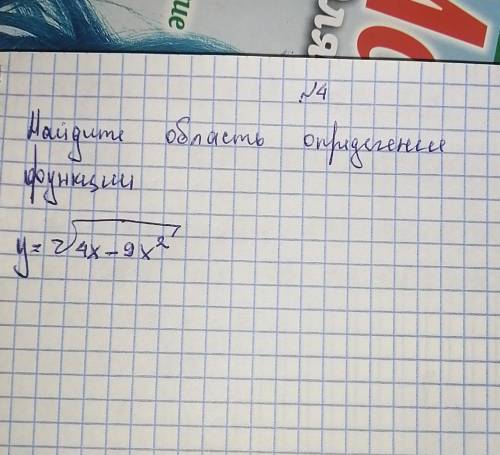 ие
ля
№4
Найдите область определение
функции
y = √4x - 9x²